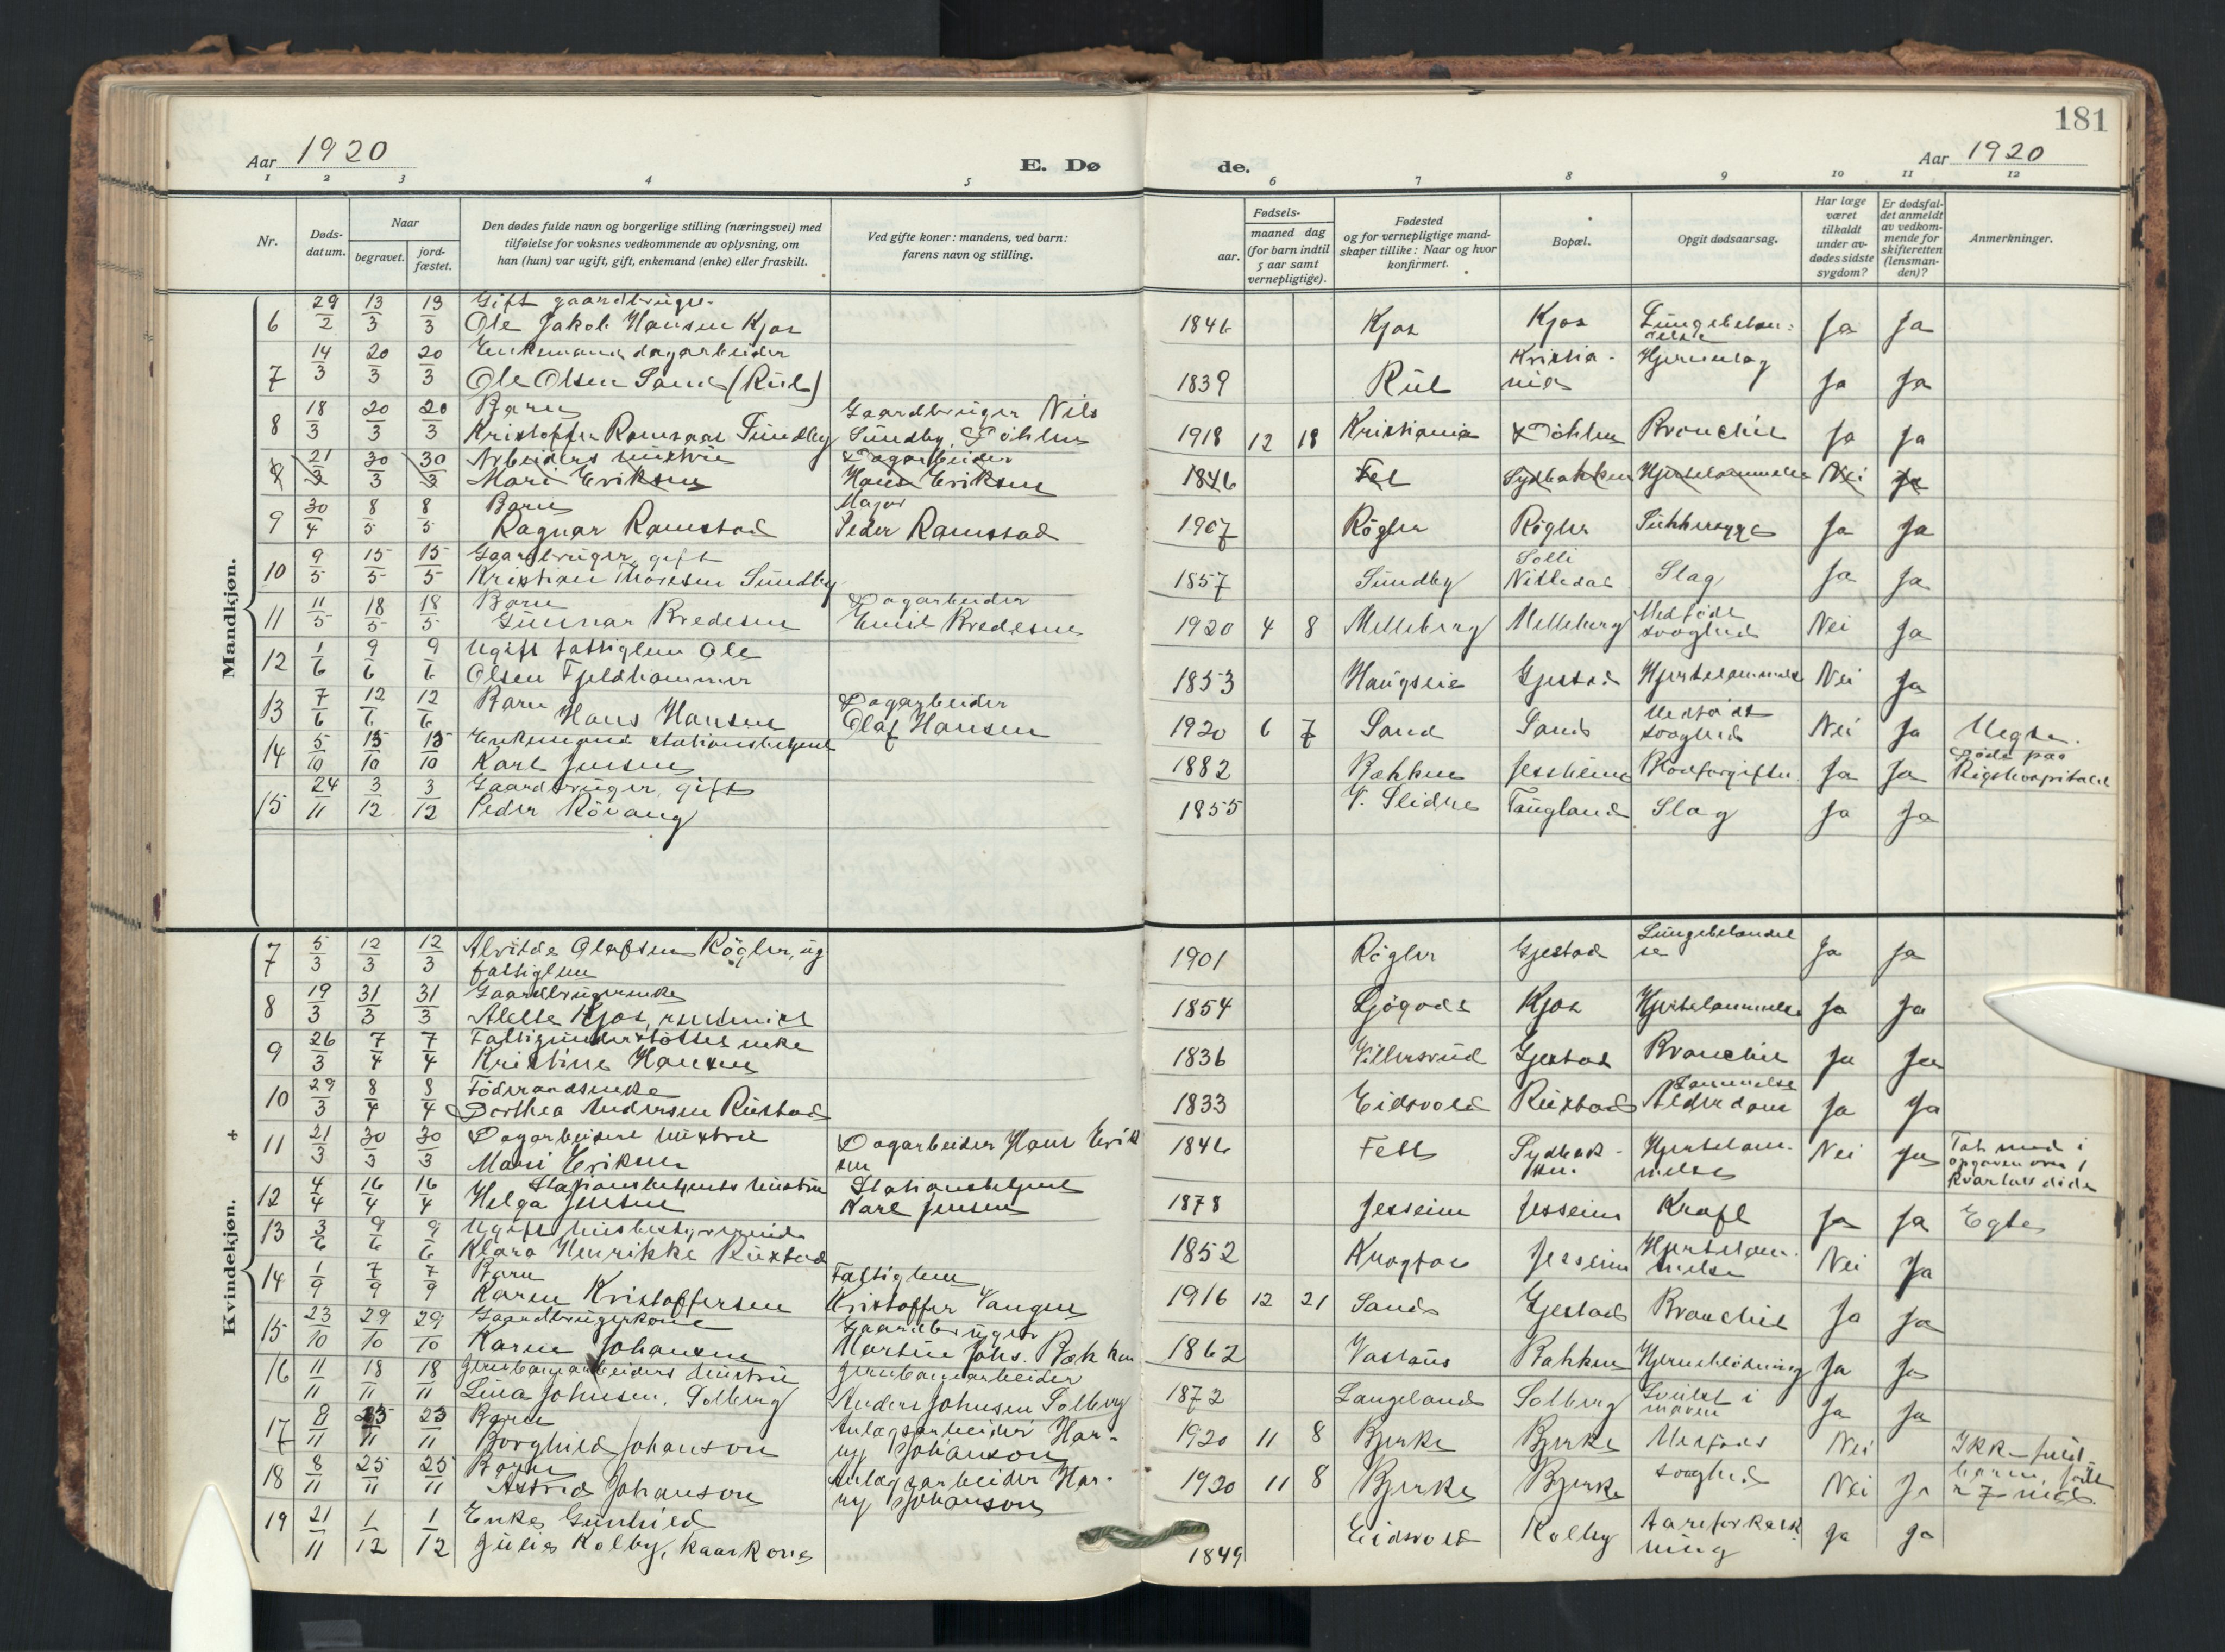 181
Aar 1920
E. Dø
de.
Aar 1920
1 2 3 4 5 6 7 8 9 10 11 12
Nr.
Døds-
datum.
Naar
begravet.
jord-
fæstet.
Den dødes fulde navn og borgerlige stilling (næringsvei) med
tilføielse for voksnes vedkommende av oplysning, om
han (hun) var ugift, gift, enkemand (enke) eller fraskilt.
Ved gifte koner: mandens, ved barn:
farens navn og stilling.
Fødsels-
aar.
maaned dag
(for barn indtil
5 aar samt
vernepligtige).
Fødested
og for vernepligtige mand-
skaper tillike: Naar og hvor
konfirmert.
Bopæl.
Opgit dødsaarsag.
Har læge
været
tilkaldt
under av-
dødes sidste
sygdom?
Er dødsfal-
det anmeldt
av vedkom-
mende for
skifteretten
(lensman-
den)?
Anmerkninger.
Mandkjøn.
6 29/2 13/3 13/3 Gift gaardbruger
Ole Jakob Hansen Kjos 1846 Kjos Kjos Lungebetæn-
delse Ja Ja
7 14/3 20/3 20/3 Enkemand dagarbeider
Ole Olsen Sand (Rul) 1839 Rul Kristia-
nia Hjerneslag Ja Ja
8 18/3 20/3 20/3 Barn Gaardbruger Nils
Kristoffer Romsaas Sundby Sundby, Döhlen 1918 12 18 Kristiania Döhlen Bronchit Ja Ja
9 21/3 30/3 30/3 Arbeiders hustru Dagarbeider
Mari Eriksen Hans Eriksen 1846 Fel Sydbakken Hjertelammelse Nei Ja
9 30/4 8/5 8/5 Barn Major
Ragnar Ramstad Peder Ramstad 1907 Rögler Rögler Ja Ja
10 9/5 15/5 15/5 Gaardbruger, gift
Kristian Thoresen Sundby 1857 Sundby Solli
Nittedal Slag Ja Ja
11 11/5 18/5 18/5 Barn Dagarbeider
Gunnar Bredesen Emil Bredesen 1920 4 8 Melleberg Melleberg Medfödt
svaghed Nei Ja
12 1/6 9/6 9/6 Ugift fattiglem Ole
Olsen Fjeldhammer 1853 Haugseie Gjestad Hjertelammelse Nei Ja
13 7/6 12/6 12/6 Barn Dagarbeider
Hans Hansen Olaf Hansen 1920 6 7 Sand Sand Medfödt
svaghed Nei Ja Uegte.
14 5/10 15/10 15/10 Enkemand stationsbetjent
Karl Jensen 1882 Bækken Jessheim Blodforgiftn. Ja Ja Döde paa
Rigshospitalet
15 24/11 3/12 3/12 Gaardbruger, gift
Peder Rövang 1855 V. Slidre Taugland Slag Ja Ja
Kvindekjøn.
7 5/3 12/3 12/3 Alvilde Olafsen Rögler, ug
fattiglem 1901 Rögler Gjestad Lungebetændel
se Ja Ja
8 19/3 31/3 31/3 Gaardbrugerenke
Alette Kjos, 1854 Ljögods Kjos Hjertelammelse Ja Ja
9 26/3 7/4 7/4 Fattigunderstöttet enke
Kristine Hansen 1836 Gjestad Bronchit Ja Ja
10 29/3 8/4 8/4 Föderaadsenke
Dorthea Andersen Rustad 1833 Eidsvold Rustad Lammelse
Alderdom Ja Ja
11 21/3 30/3 30/3 Dagarbeiders hustru Dagarbeider Hans Erik
Mari Eriksen sen 1846 Fell Sydbak-
ken Hjertelam-
melse Nei Ja Tat med i
opgaven over 1
kvartals döde
12 4/4 16/4 16/4 Stationsbetjents hustru Stationsbetjent
Helga Jensen Karl Jensen 1878 Jesseim Jesseim Kræft Ja Ja Egte
13 3/6 9/6 9/6 Ugift husbestyrerinde
Klara Henrikke Rustad 1852 Krogfos Jesseim Hjertelam-
melse Nei Ja
14 1/9 7/9 7/9 Barn Fattiglem
Karen Kristoffersen Kristoffer Vangen 1916 12 21 Sand Gjestad Bronchit Ja Ja
15 23/10 29/10 29/10 Gaardbrugerkone Gaardbruger
Karen Johansen Martin Johs. Bækken 1862 Vaslaus Bakken Hjerneblödning Ja Ja
16 11/11 18/11 18/11 Jernbanearbeiders hustru Jernbanearbeider
Lina Johnsen, Solberg Anders Johnsen Solberg 1872 Langeland Solberg Svulst i
maven Ja Ja
17 8/11 25/11 23/11 Barn Anlægsarbeider Har-
Borghild Johanson ry Johanson 1920 11 8 Bjerke Bjerke Medfödt Nei Ikke fuld-
18 8/11 25/11 25/11 Barn Anlægsarbeider Har-
Astrid Johanson ry Johanson 1920 11 8 Bjerke Bjerke svaghed Nei Ja baaren, född
7 md.
19 21/11 1/12 1/12 Enke Gunhild
Julie Kolby, kaarkone 1849 Eidsvold Kolby Aareforkalk-
ning Ja Ja